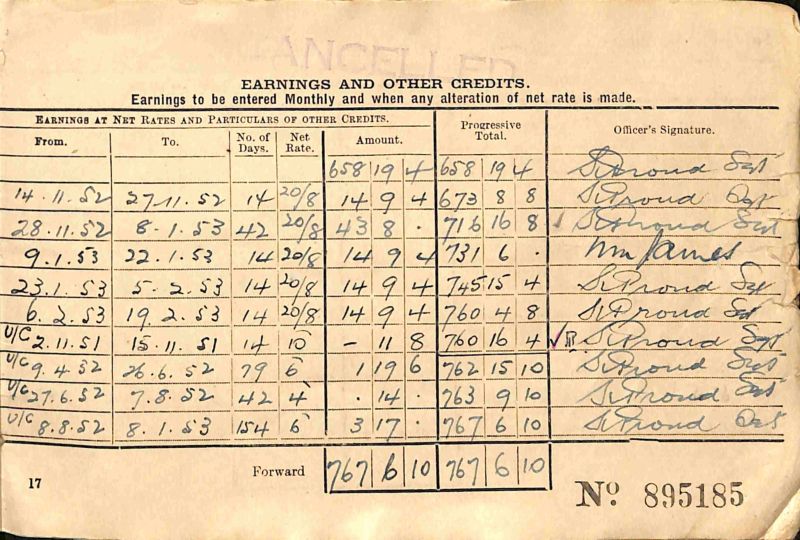 ANCELLED
EARNINGS AND OTHER CREDITS.
Earnings to be entered Monthly and when any alteration of net rate is made.
EARNINGS AT NET RATES AND PARTICULARS OF OTHER CREDITS. Progressive Total. Officer's Signature.
From. To. No. of Days. Net Rate. Amount.
658 19 4 658 19 4 S Proud Sgt
14.11.52 27.11.52 14 20/8 14 9 4 673 8 8 S Proud Sgt
28.11.52 8.1.53 42 20/8 43 8 . 716 16 8 S Proud Sgt
9.1.53 22.1.53 14 20/8 14 9 4 731 6 . Wm James
23.1.53 5.2.53 14 20/8 14 9 4 745 15 4 S Proud Sgt
6.2.53 19.2.53 14 20/8 14 9 4 760 4 8 S Proud Sgt
U/C 2.11.51 15.11.51 14 10 – 11 8 760 16 4 S Proud Sgt
U/C 9.4.52 26.6.52 79 6 1 19 6 762 15 10 S Proud Sgt
U/C 27.6.52 7.8.52 42 4 . 14 . 763 9 10 S Proud Sgt
U/C 8.8.52 8.1.53 154 6 3 17 . 767 6 10 S Proud Sgt
Forward 767 6 10 767 6 10
17 No 895185